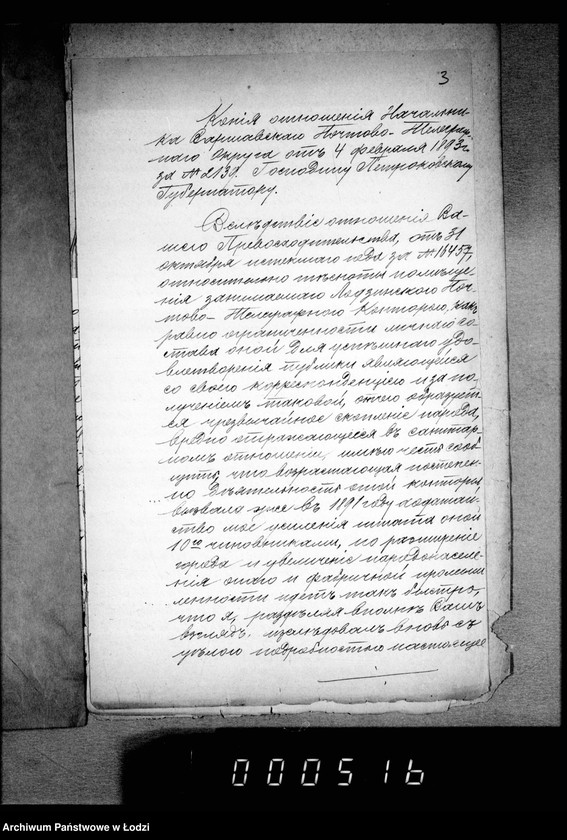 3
Копія отношенія Начальни-
ка Варшавскаго Почтово-Телеграф-
наго Округа отъ 4 февраля 1893 г.
за № 2130. Господину Петроковскому
Губернатору.
Вслѣдствіе отношенія Ва-
шего Превосходительства, отъ 31
октября истекшаго года за № 16457,
относительно тѣсноты помѣще-
нія занимаемаго Лодзинскою Поч-
тово-Телеграфною Конторою, какъ
равно ограниченности личнаго со-
става оной для успѣшнаго удо-
влетворенія публики являющейся
со своею корреспонденціею и за по-
лученіемъ таковой, отчего образует-
ся чрезвычайное скопленіе народа,
вредно отражающееся въ санитар-
номъ отношеніи, имѣю честь сооб-
щить, что возрастающая постепен-
но дѣятельность оной конторы
вызвала уже въ 1891 году ходатай-
ство мое усиленія штата оной
10ю чиновниками, но расширеніе
города и увеличеніе народонаселе-
нія онаго и фабричной промыш-
ленности идетъ такъ быстро,
что я, раздѣляя вполнѣ Вашъ
взглядъ, изслѣдовалъ вновь съ
цѣлою подробностью настоящее
000516
Archiwum Państwowe w Łodzi